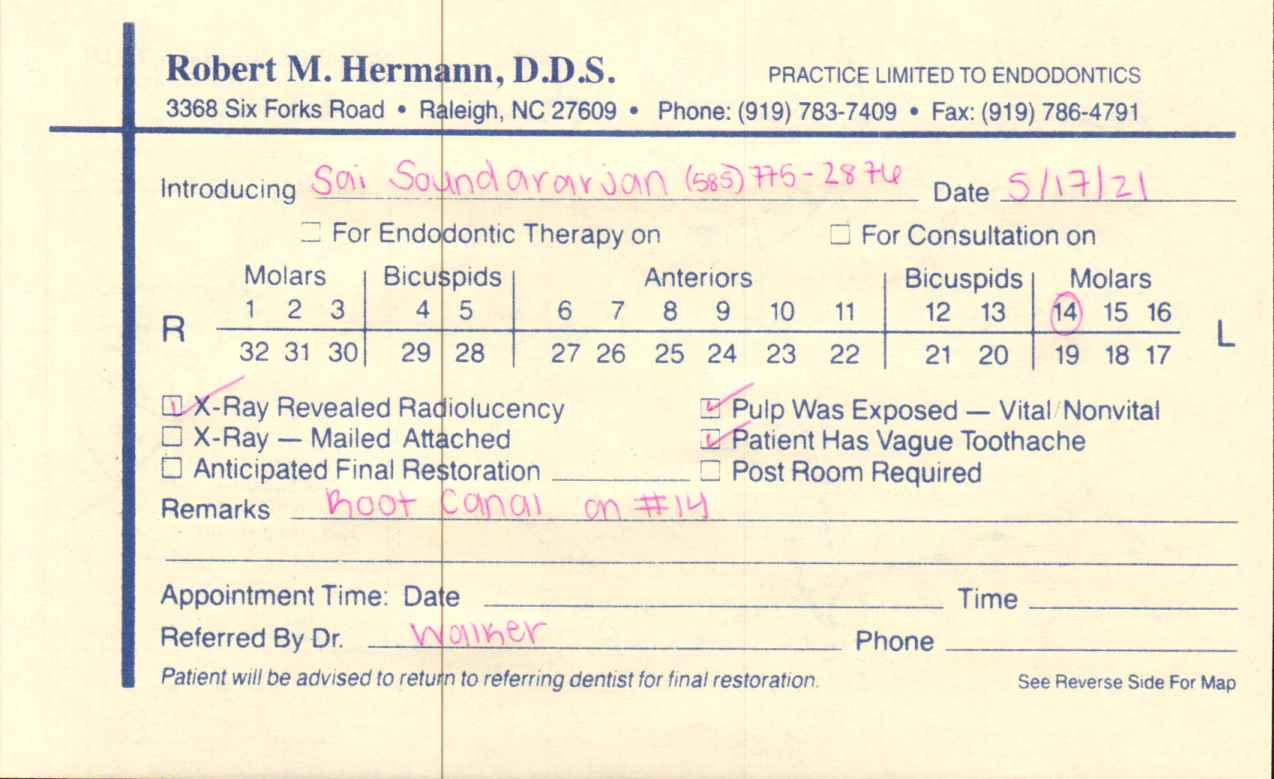 Robert M. Hermann, D.D.S. PRACTICE LIMITED TO ENDODONTICS
3368 Six Forks Road • Raleigh, NC 27609 • Phone: (919) 783-7409 • Fax: (919) 786-4791
Introducing Sai Soundararjan (585) 775-2876 Date 5/17/21
☐ For Endodontic Therapy on ☐ For Consultation on
Molars Bicuspids Anteriors Bicuspids Molars
1 2 3 4 5 6 7 8 9 10 11 12 13 14 15 16
R L
32 31 30 29 28 27 26 25 24 23 22 21 20 19 18 17
☑ X-Ray Revealed Radiolucency ☑ Pulp Was Exposed — Vital/Nonvital
☐ X-Ray — Mailed Attached ☑ Patient Has Vague Toothache
☐ Anticipated Final Restoration ☐ Post Room Required
Remarks Root Canal on #14
Appointment Time: Date Time
Referred By Dr. Walker Phone
Patient will be advised to return to referring dentist for final restoration. See Reverse Side For Map